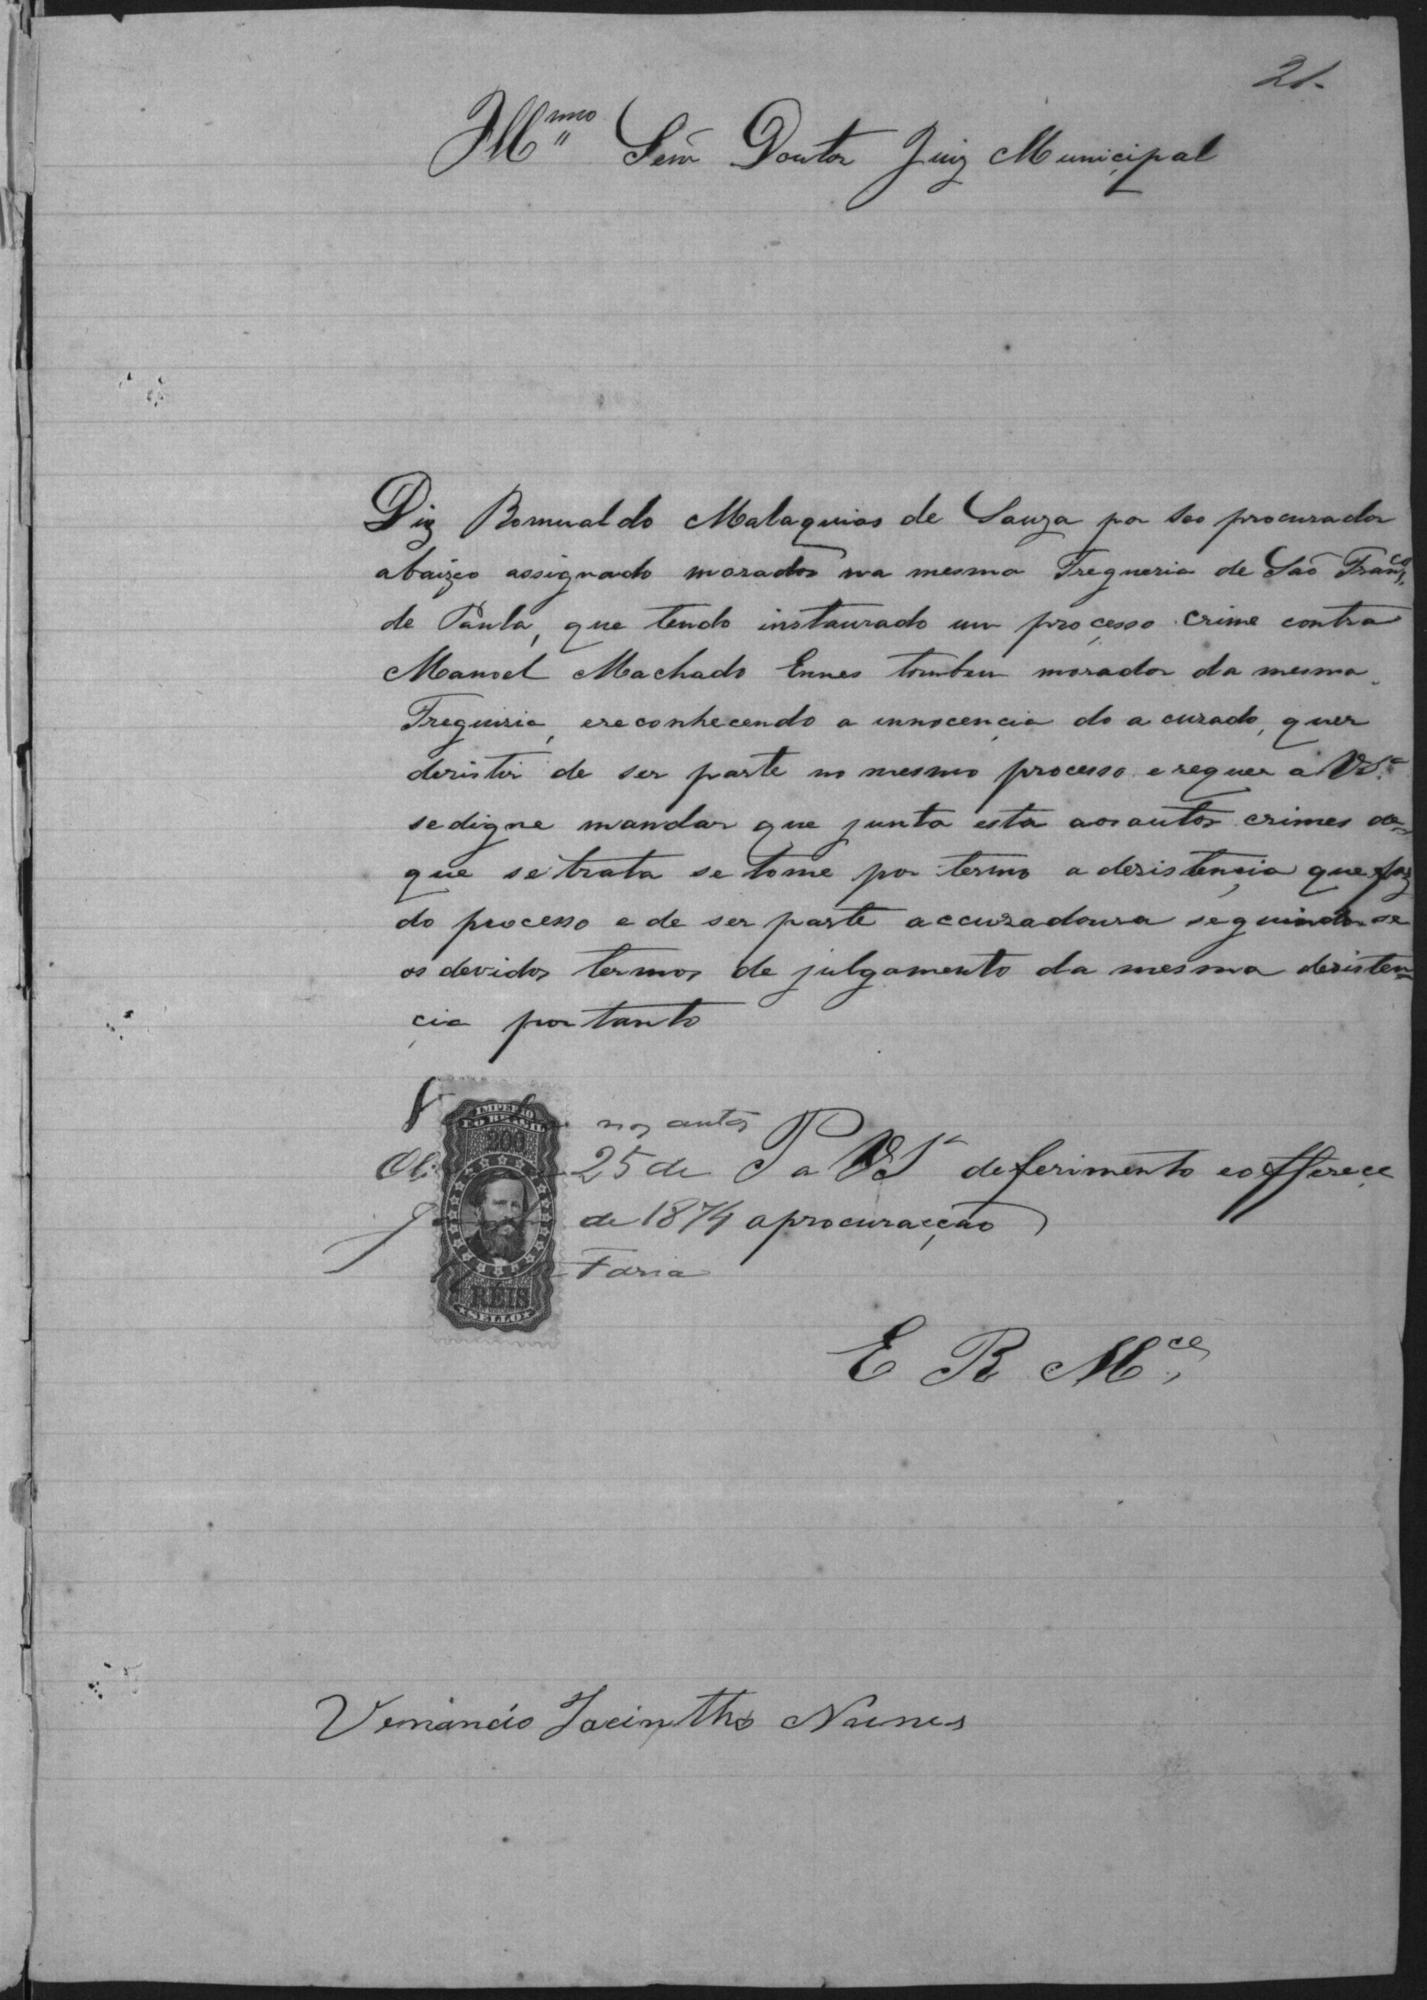 21.
Illmo Senr Doutor Juiz Municipal
Diz Romualdo Malaquias de Souza por seo procurador
abaixo assignado morador na mesma Fregueria de São Franco
de Paula, que tendo instaurado um processo crime contra
Manoel Machado Ennes tambem morador da mesma
Freguiria, ereconhecendo a innocencia do acuzado, quer
dezistir de ser parte no mesmo processo e requer a VSa
sedigne mandar que junta esta aos autos crimes de
que se trata se tome por termo a dezistencia que faz
do processo e de ser parte accuzadoura seguindo se
os devidos termos de julgamento da mesma dezisten
cia portanto
nos autos
25 de P a VSa deferimento eofferece
de 1874 aprocuracção
Faria
IMPERIO
DO BRASIL
200
REIS
SELLO
E R Mce
Venancio Jacintho Nunes